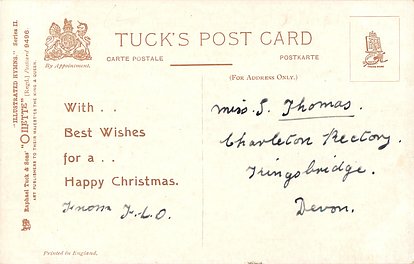 TUCK'S POST CARD
CARTE POSTALE
POSTKARTE
(FOR ADDRESS ONLY.)
By Appointment.
"ILLUSTRATED HYMNS." Series II.
"OILETTE" [Regd.] Postcard 9496.
Raphael Tuck & Sons'
ART PUBLISHERS TO THEIR MAJESTIES THE KING & QUEEN.
With . .
Best Wishes
for a . .
Happy Christmas.
From F.L.O.
Miss. S. Thomas.
Charleton Rectory.
Kingsbridge.
Devon.
Printed in England.